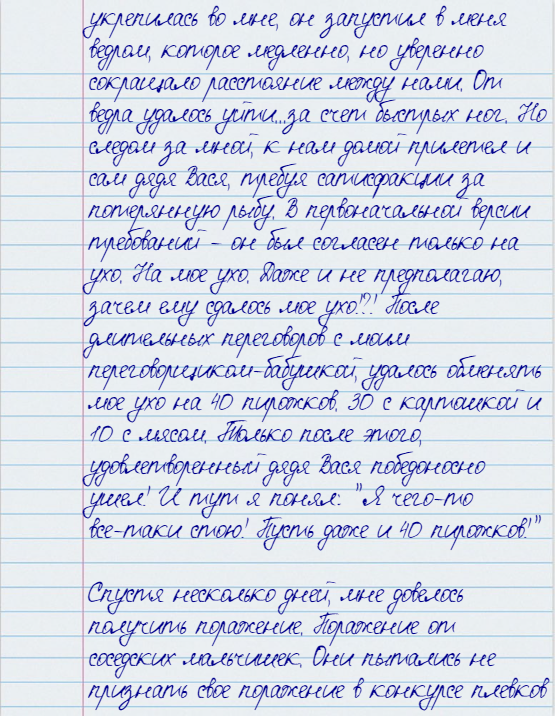 укрепилась во мне, он запустил в меня
ведром, которое медленно, но уверенно
сокращало расстояние между нами. От
ведра удалось уйти...за счет быстрых ног. Но
следом за мной, к нам домой прилетел и
сам дядя Вася, требуя сатисфакции за
потерянную рыбу. В первоначальной версии
требований - он был согласен только на
ухо. На мое ухо. Даже и не предполагаю,
зачем ему сдалось мое ухо!?! После
длительных переговоров с моим
переговорщиком-бабушкой, удалось обменять
мое ухо на 40 пирожков. 30 с картошкой и
10 с мясом. Только после этого,
удовлетворенный дядя Вася победоносно
ушел! И тут я понял: "Я чего-то
все-таки стою! Пусть даже и 40 пирожков!"
Спустя несколько дней, мне довелось
получить поражение. Поражение от
соседских мальчишек. Они пытались не
признать свое поражение в конкурсе плевков